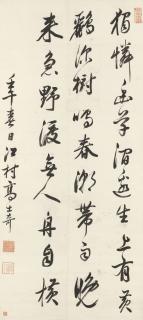 獨憐幽草澗邊生上有黃
鸝深樹鳴春潮帶雨晚
來急野渡無人舟自橫
壬午春日江村高士奇